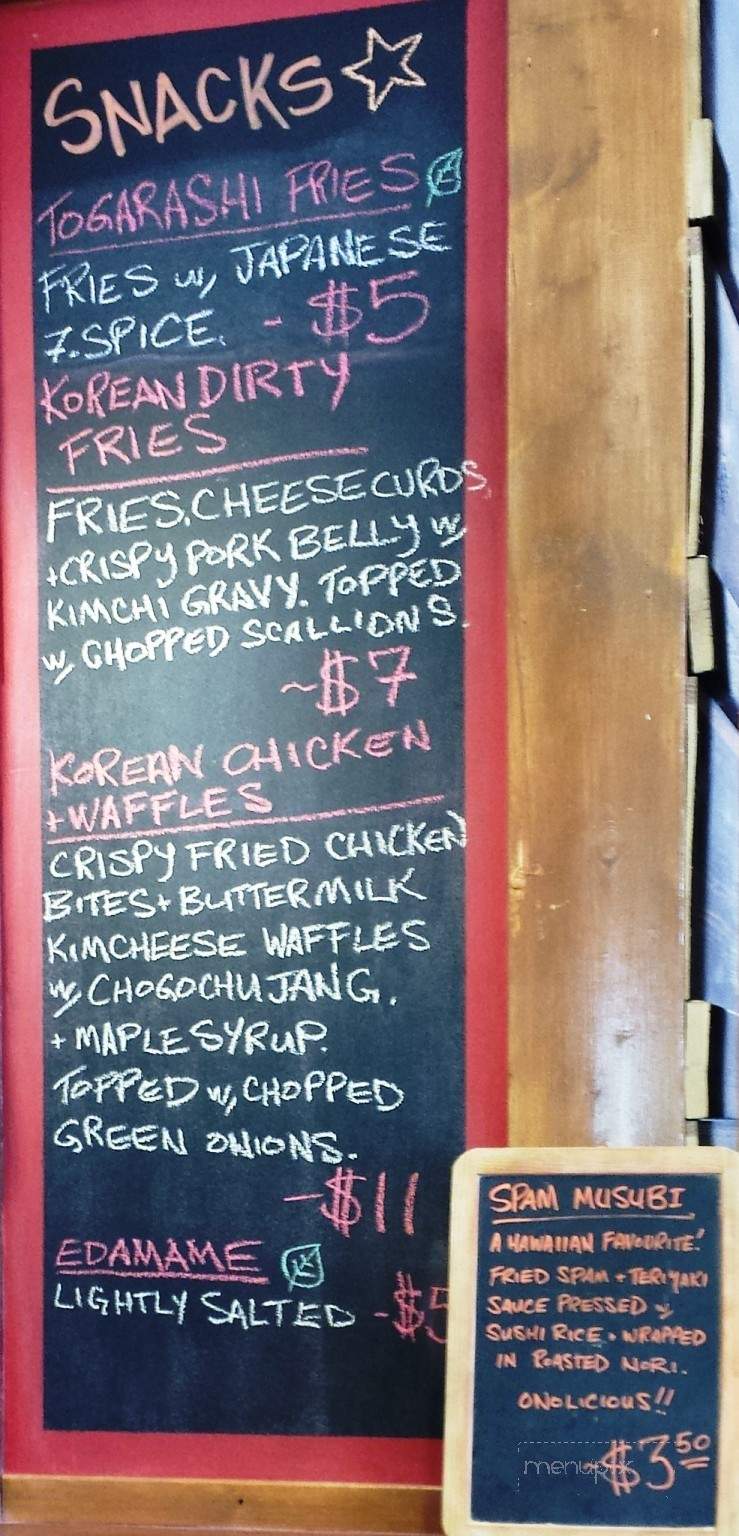 SNACKS
TOGARASHI FRIES
FRIES w/ JAPANESE
7.SPICE. - $5
KOREAN DIRTY
FRIES
FRIES, CHEESE CURDS,
+CRISPY PORK BELLY w/
KIMCHI GRAVY. TOPPED
w/ CHOPPED SCALLIONS.
~$7
KOREAN CHICKEN
+WAFFLES
CRISPY FRIED CHICKEN
BITES+ BUTTERMILK
KIMCHEESE WAFFLES
w/ CHOGOCHUJANG.
+ MAPLE SYRUP.
TOPPED w/ CHOPPED
GREEN ONIONS.
-$11
EDAMAME
LIGHTLY SALTED -$5
SPAM MUSUBI
A HAWAIIAN FAVOURITE!
FRIED SPAM + TERIYAKI
SAUCE PRESSED w/
SUSHI RICE + WRAPPED
IN ROASTED NORI.
ONOLICIOUS!!
~$3.50
menupix